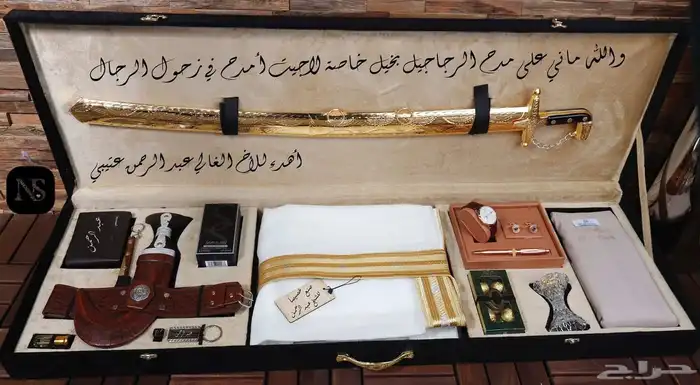 والله ماني على مدح الرجاجيل بخيل خاصة لاجيت أمدح في زحول الرجال
أهداء للاخ الغالي عبد الرحمن عتيبي
NS
عبد الرحمن
حراج